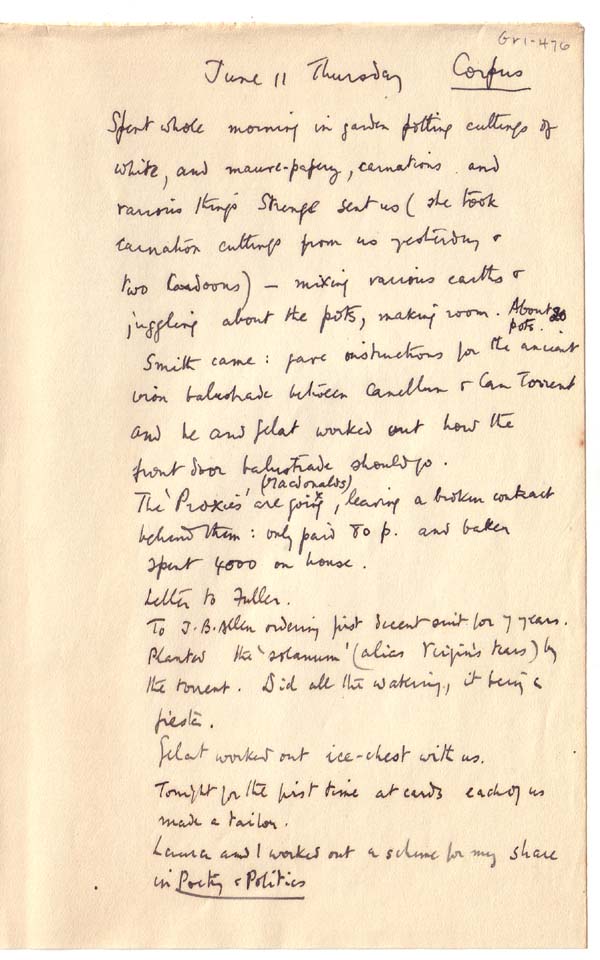 Gr1-476
June 11 Thursday Corpus
Spent whole morning in garden potting cuttings of
white, and mauve-papery, carnations and
various things Strenge sent us (she took
carnation cuttings from us yesterday &
two Cardoons) – mixing various earths &
juggling about the pots, making room. About 20
pots.
Smith came: gave instructions for the ancient
iron balustrade between Canellun & Can Torrent
and he and Gelat worked out how the
front door balustrade should go.
(Macdonalds)
The 'Proxies' are going, leaving a broken contract
behind them: only paid 80 p. and baker
spent 4000 on house.
Letter to Fuller.
To J.B. Allen ordering first decent suit for 7 years.
Planted the 'solanum' (alias Virgin's tears) by
the torrent. Did all the watering, it being a
fiesta.
Gelat worked out ice-chest with us.
Tonight for the first time at cards each of us
made a tailor.
Laura and I worked out a scheme for my share
in Poetry & Politics